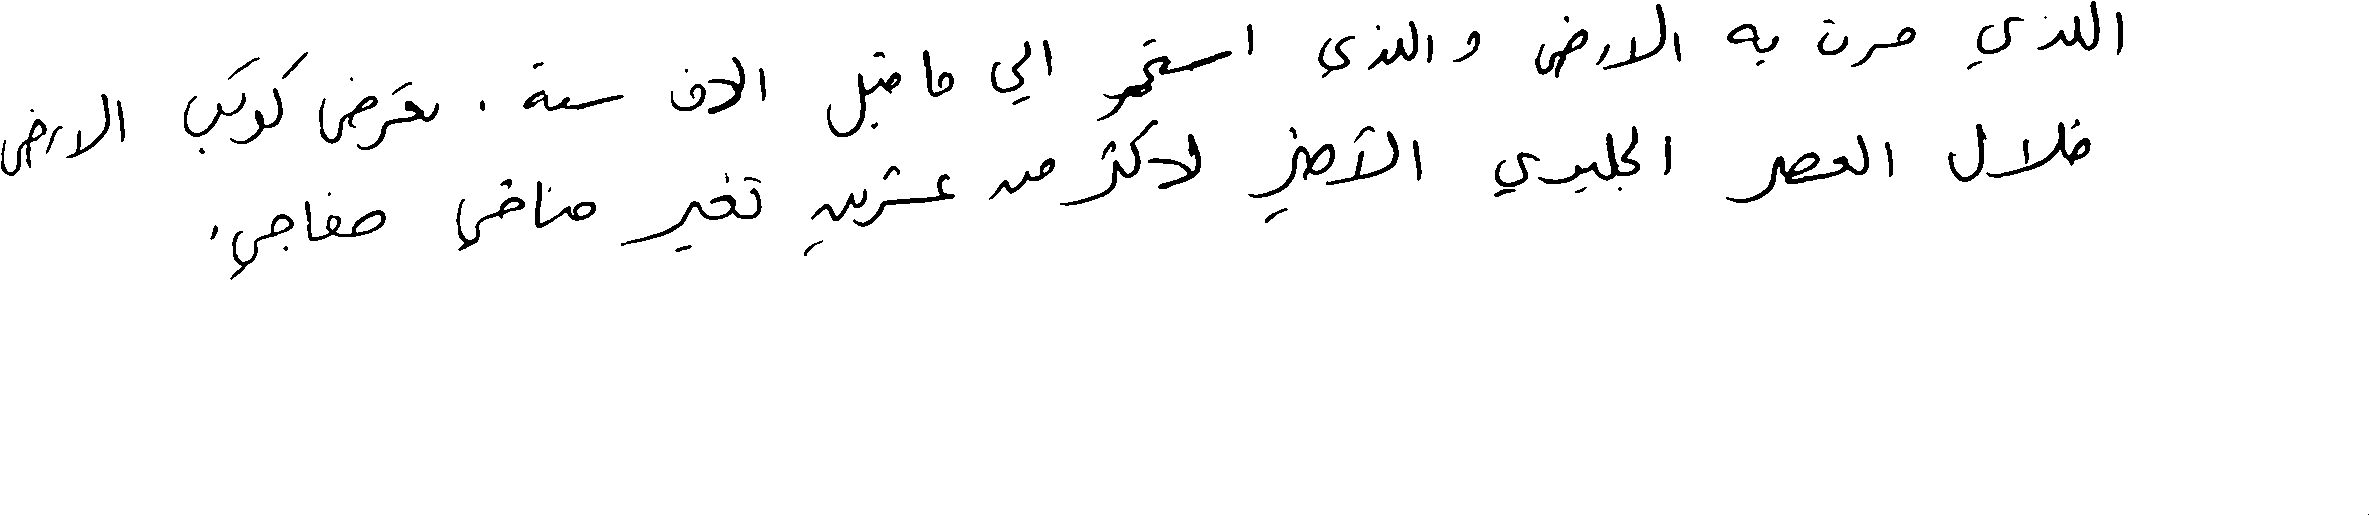 اللذي مرت به الارض واللذي استمر الي ما قبل الاف سنة. تعرض كوكب الارض
خلال العصر الجليدي الأخير لاكثر من عشرين تغير مناخي مفاجي.